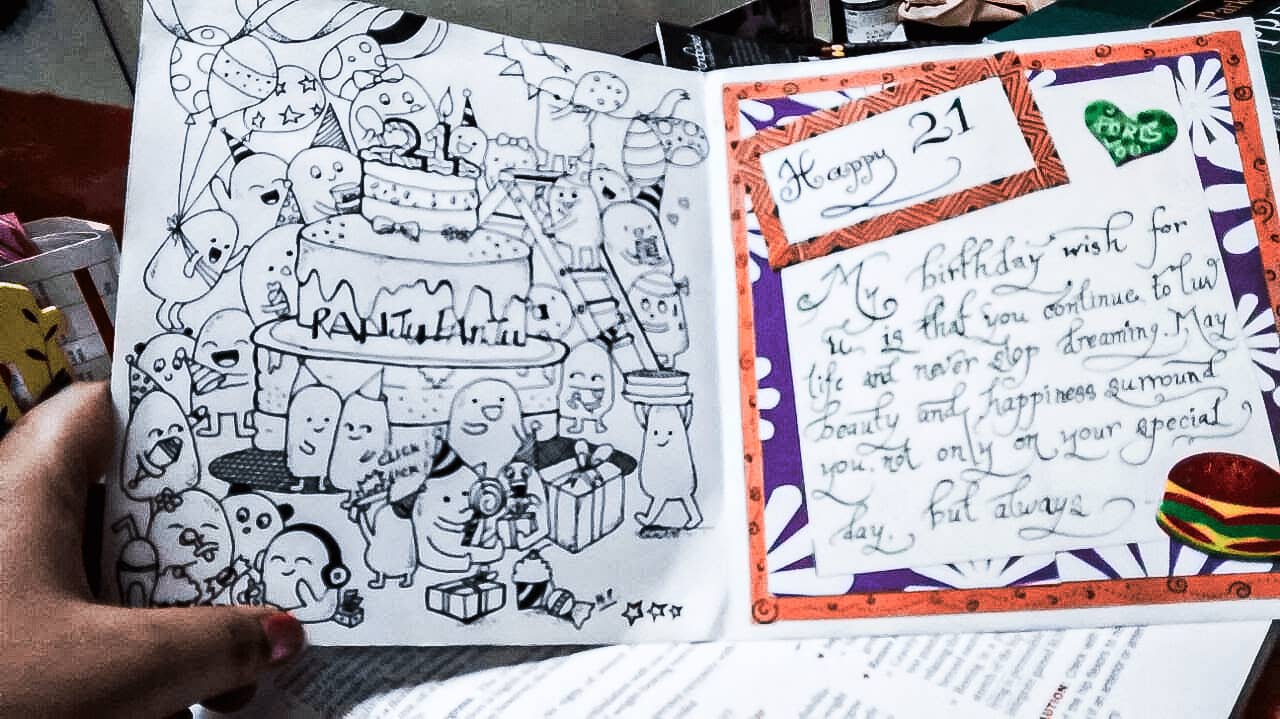 21
CLICK
CLICK!
Happy 21
FOR U
My birthday wish for
u is that you continue to luv
life and never stop dreaming. May
beauty and happiness surround
you, not only on your special
day. but always